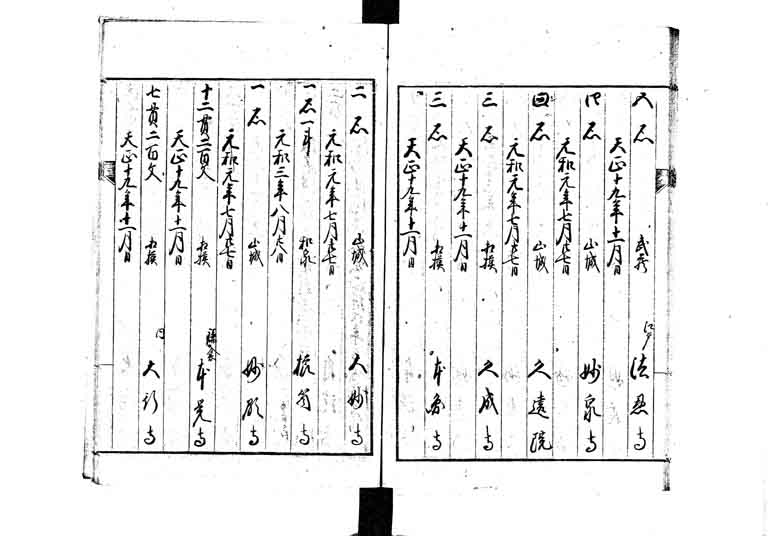 五石 武蔵 江戸 法恩寺
天正十九年十一月日
四石 山城 妙泉寺
元和元年七月廿七日
四石 山城 久遠院
元和元年七月廿七日
三石 相模 久成寺
天正十九年十一月日
三石 相模 本 寺
天正十九年十一月日
二石 山城 大妙寺
元和元年七月廿七日
一石一斗 和泉 寺
元和三年八月 日
一石 山城 妙顕寺
元和元年七月廿七日
十二貫二百文 相模 鎌倉 本覚寺
天正十九年十一月日
七貫二百文 相模 同 大巧寺
天正十九年十一月日